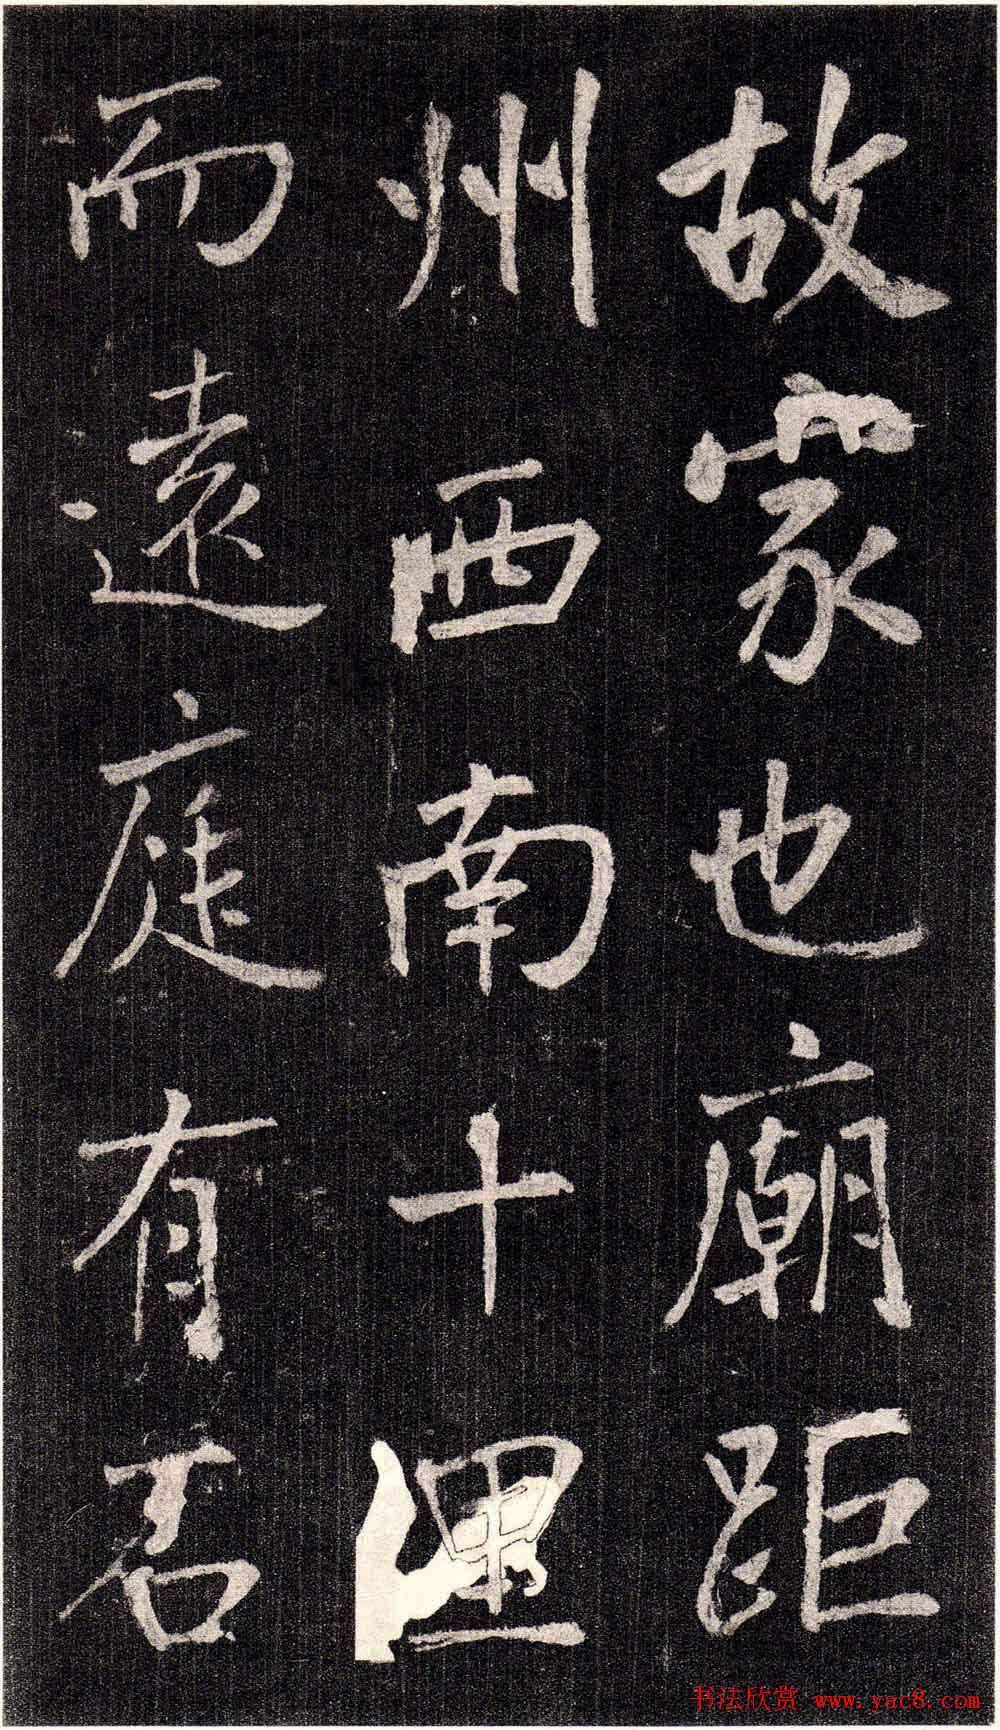 故家也廟距
州西南十里
而遠庭有石
书法欣赏 www.yac8.com